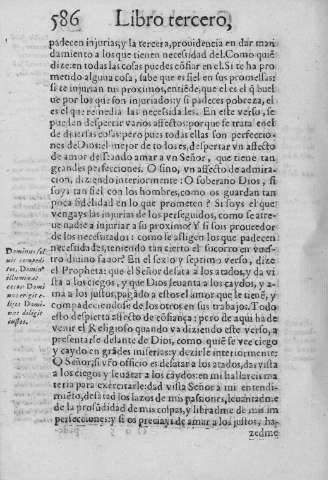 586 Libro tercero,
padecen injurias, y la tercera, prouidencia en dar man
damiento a los que tienen necesidad del. Como qué
dize: en todas las cosas puedes cõfiar en el. Si te ha pro
metido alguna cosa, sabe que es fiel en sus promessas:
si te injurian tus proximos, entiẽde, que el es el q̃ buel
ue por los que son injuriados: y si padeces pobreza, el
es el que remedia las necessidades. En este verso, se
pueden despertar varios affectos: porque se trata en el
de diuersas cosas: pero pues todas ellas son perfeccio-
nes de Dios: el mejor de to los es, despertar vn affecto
de amor desseando amar a vn Señor, que tiene tan
grandes perfecciones. O sino, vn affecto de admira-
cion, diziendo interiormente: O soberano Dios, si
soys tan fiel con los hombres, como os guardan tan
poca fidelidad en lo que prometen? Si soys el que
vengays las injurias de los perseguidos, como se atre-
ue nadie a injuriar a su proximo? Y si sois proueedor
de los necesitados: como se affligen los que padecen
necesidades, teniendo tan cierto el socorro en vues-
tro diuino fauor? En el sexto y septimo verso, dize
el Propheta: que el Señor desata a los atados, y da vis
ta a los ciegos, y que Dios leuanta a los caydos, y a-
ma a los justos, pagãdo a estos el amor que le tienẽ, y
compadeciendose de los otros en sus trabajos. Todo
esto despierta affecto de cõfiança: pero de aqui ha de
venir el Religioso quando va diziendo este verso, a
presentarse delante de Dios, como quiẽ se vee ciego
y caydo en grãdes miserias: y dezirle interiormente:
O Señor, si vr̃o officio es desatar a los atados, dar vis ta
a los ciegos y leuãtar a los caydos: en mi hallareis ma
teria para exercitarle: dad vista Señor a mi entendi-
miẽto, desatad los lazos de mis passiones, leuantadme
de la profũdidad de mis culpas, y libradme de mis im
perfecciones: y si os preciays de amar a los justos, ha-
zedme
Dominus sol
uit compedi
tos, Dominꝰ
illuminat
cecos Domi
nus erigit e-
lisos Domi-
nus diligit
iustos.